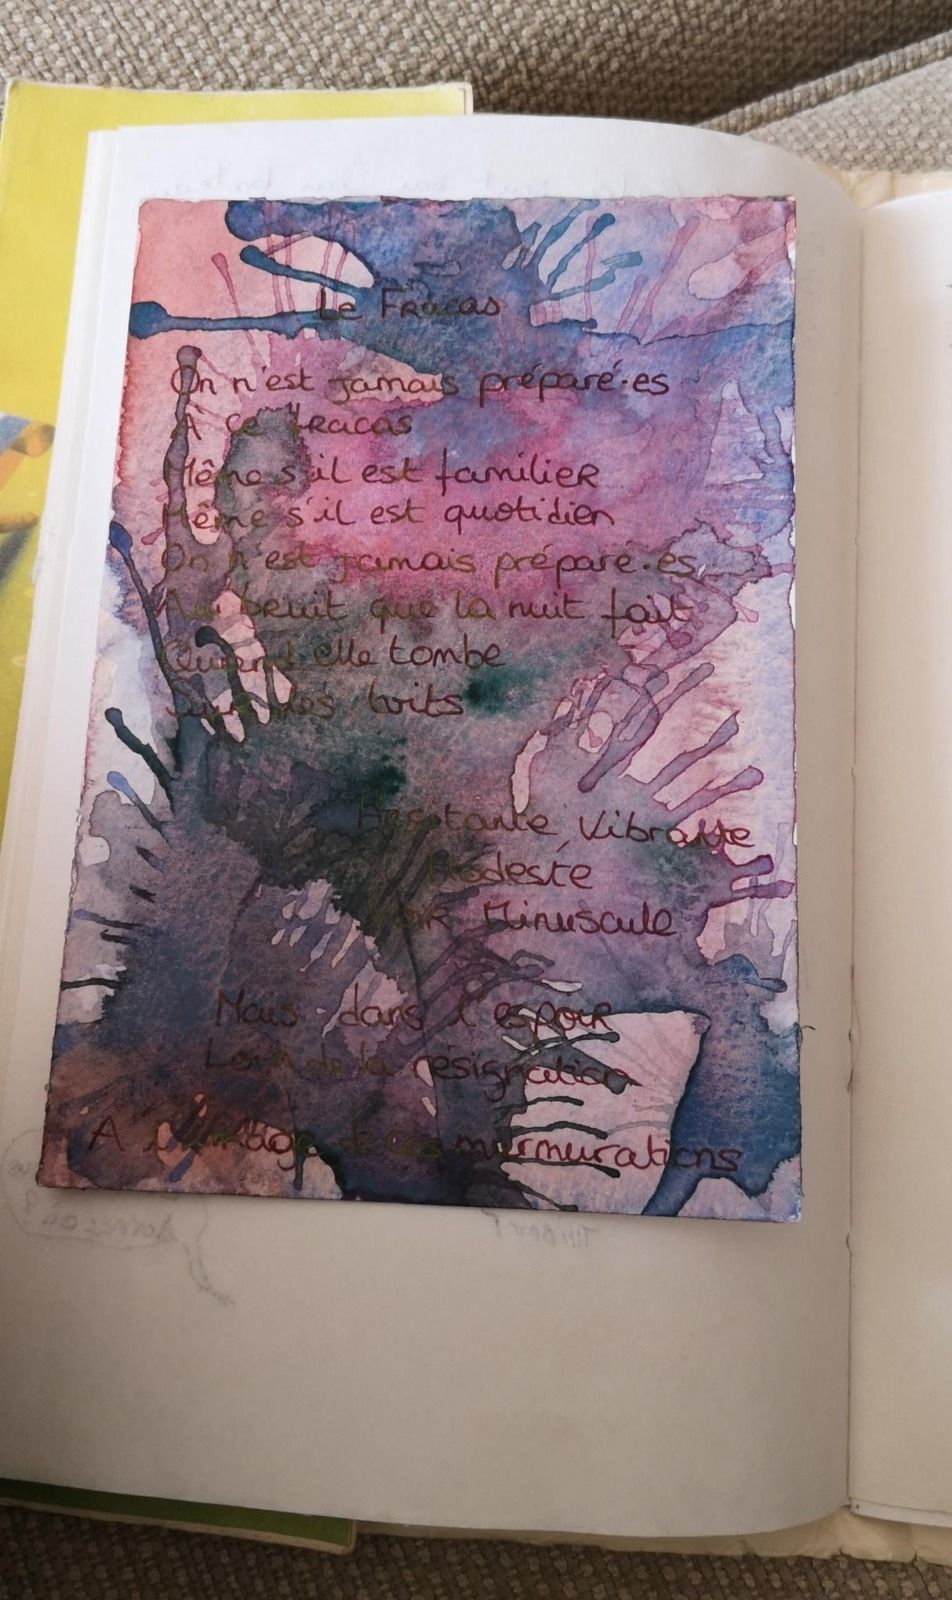 Le Fracas
On n'est jamais préparé·es
À ce fracas
Même s'il est familier
Même s'il est quotidien
On n'est jamais préparé·es
Au bruit que la nuit fait
Quand elle tombe
Sur les toits
Hésitante, Vibrante
Modeste
Minuscule
Mais dans l'espoir
Loin de la résignation
A l'image de ces murmurations